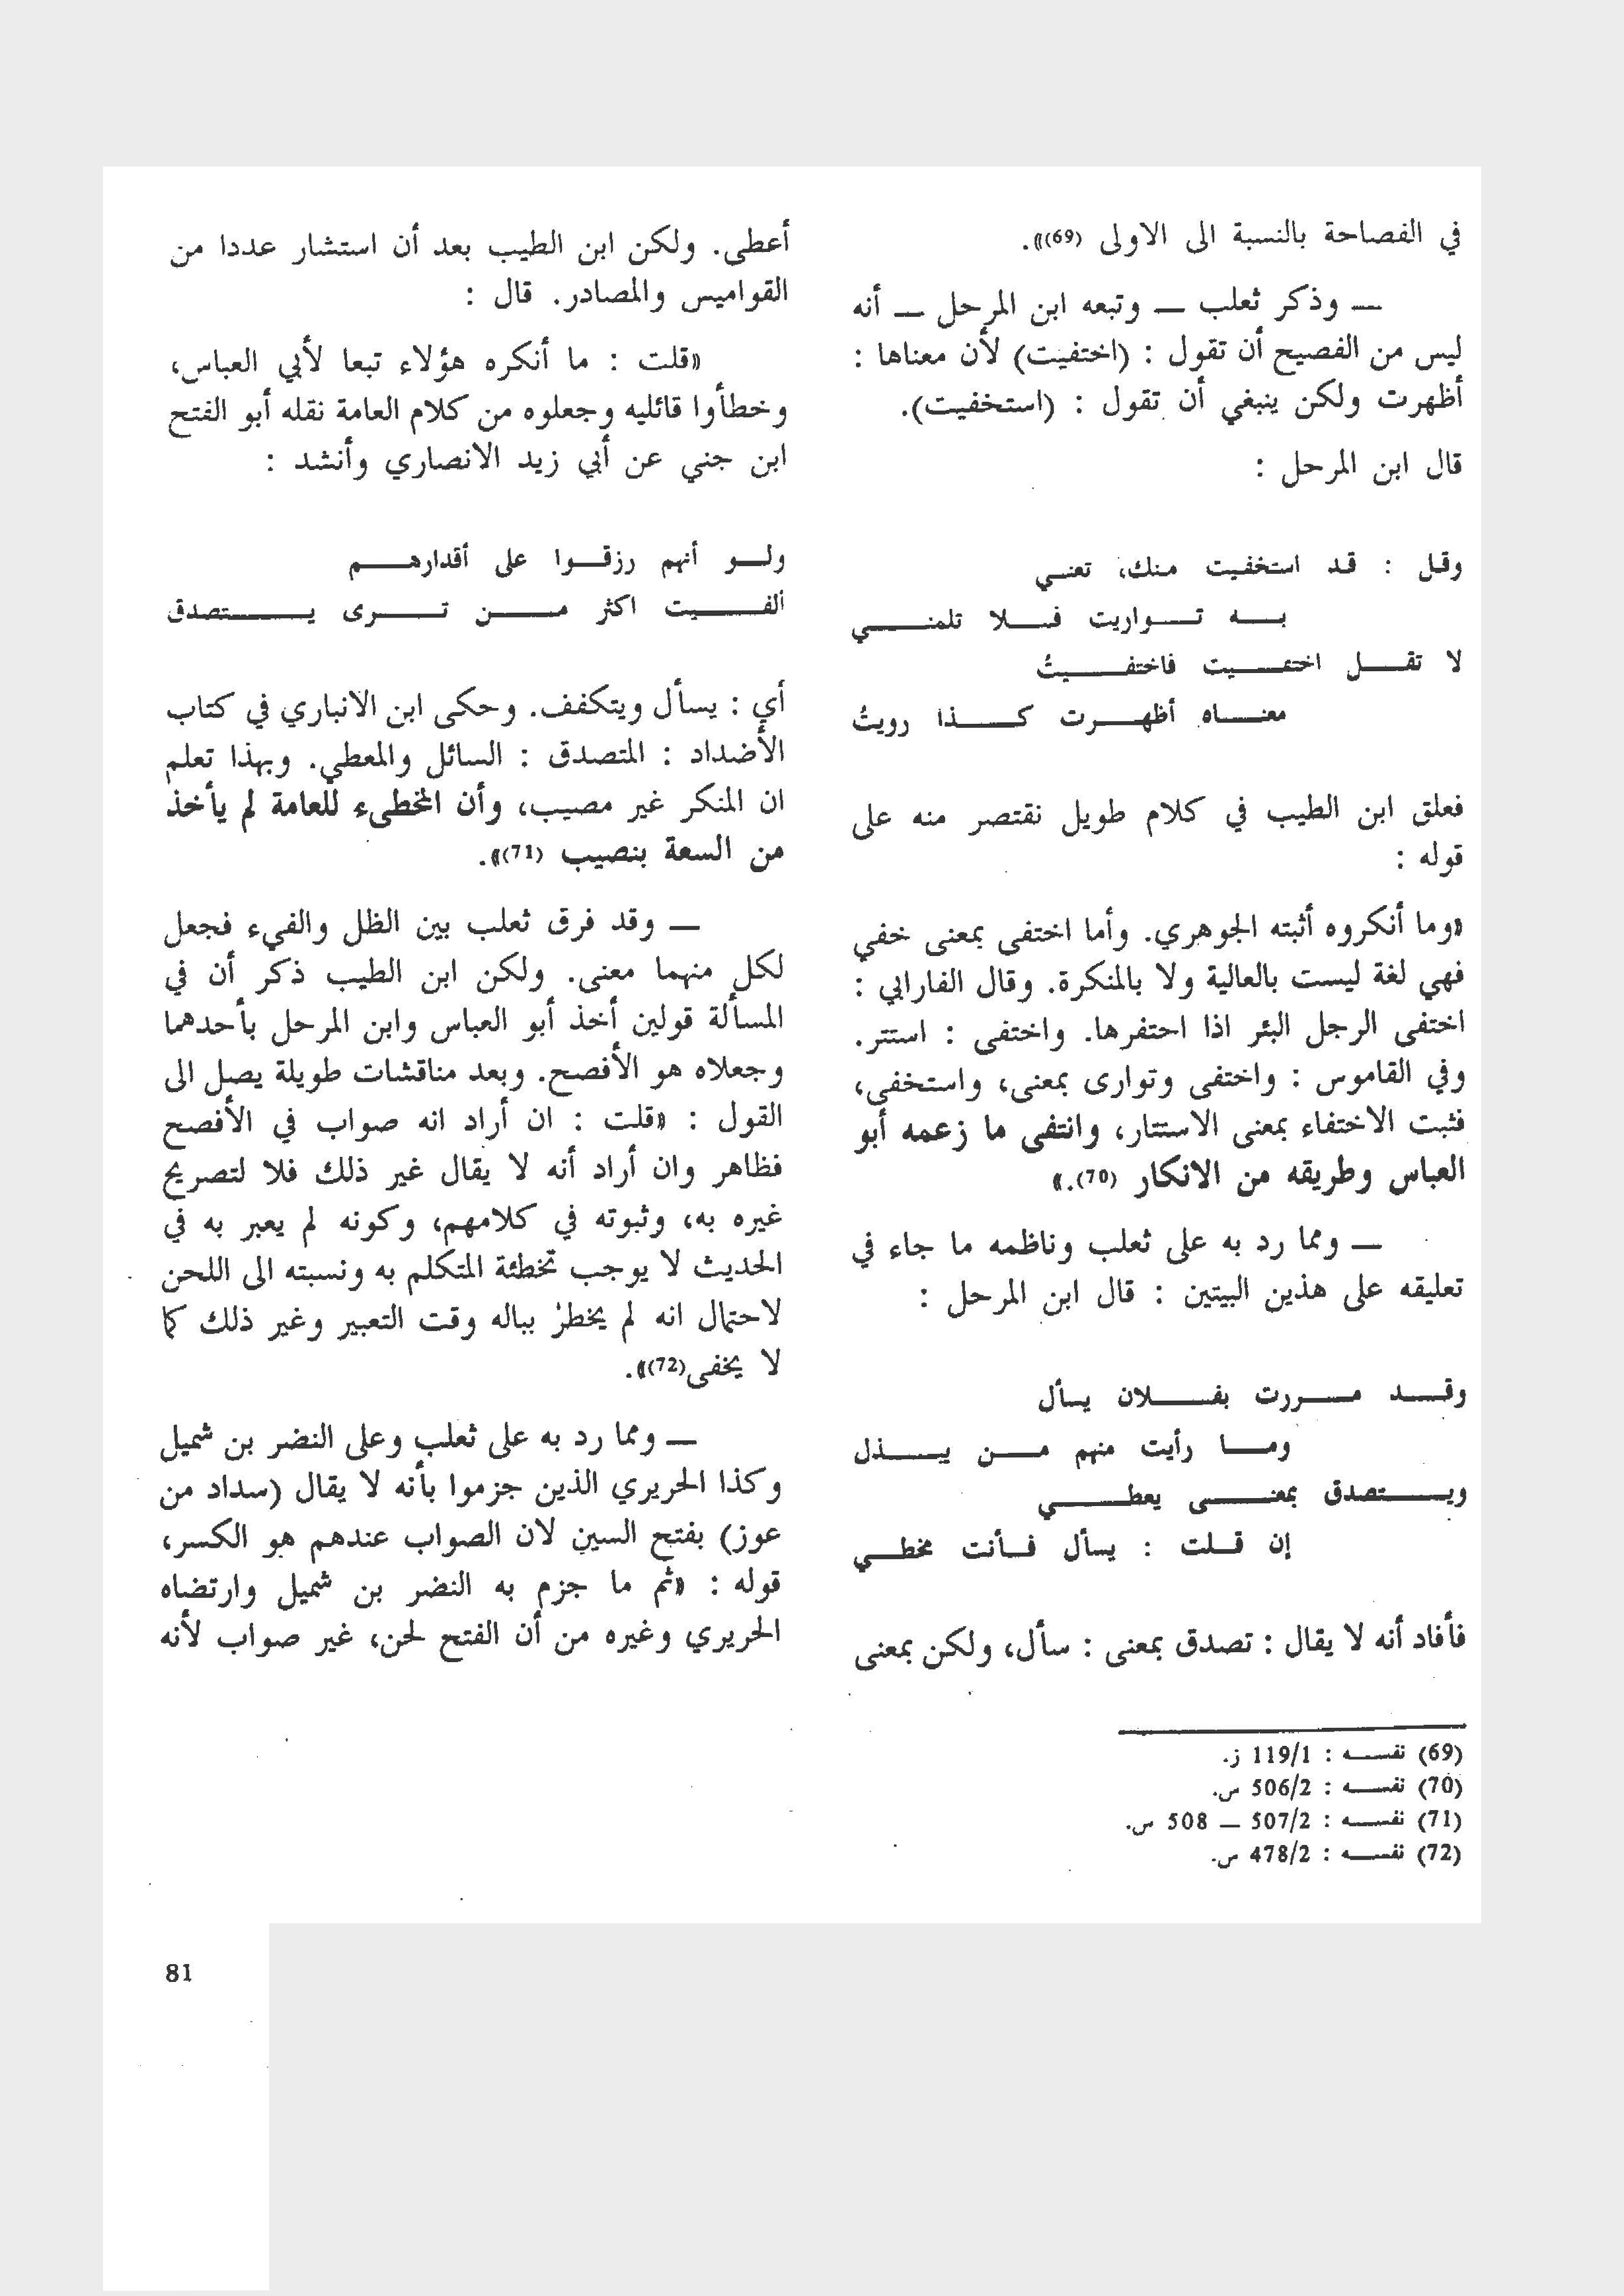 في الفصاحة بالنسبة الى الاولى (69)».
— وذكر ثعلب — وتبعه ابن المرحل — أنه
ليس من الفصيح أن تقول : (اختفيت) لأن معناها :
أظهرت ولكن ينبغي أن تقول : (استخفيت).
قال ابن المرحل :
وقل : قد استخفيت منك، تعني
به تواريت فلا تلمني
لا تقل اختفيت فاختفيتُ
معناه أظهرت كذا رويتُ
فعلق ابن الطيب في كلام طويل نقتصر منه على
قوله :
«وما أنكروه أثبته الجوهري. وأما اختفى بمعنى خفي
فهي لغة ليست بالعالية ولا بالمنكرة. وقال الفارابي :
اختفى الرجل البئر اذا احتفرها. واختفى : استتر.
وفي القاموس : واختفى وتوارى بمعنى، واستخفى،
فثبت الاختفاء بمعنى الاستتار، وانتفى ما زعمه أبو
العباس وطريقه من الانكار (70).»
— ومما رد به على ثعلب وناظمه ما جاء في
تعليقه على هذين البيتين : قال ابن المرحل :
وقد مررت بفلان يسأل
وما رأيت منهم من يبذل
ويتصدق بمعنى يعطي
إن قلت : يسأل فأنت مخطي
فأفاد أنه لا يقال : تصدق بمعنى : سأل، ولكن بمعنى
أعطى. ولكن ابن الطيب بعد أن استشار عددا من
القواميس والمصادر. قال :
«قلت : ما أنكره هؤلاء تبعا لأبي العباس،
وخطأوا قائليه وجعلوه من كلام العامة نقله أبو الفتح
ابن جني عن أبي زيد الانصاري وأنشد :
ولو أنهم رزقوا على أقدارهم
ألفيت اكثر من ترى يتصدق
أي : يسأل ويتكفف. وحكى ابن الانباري في كتاب
الأضداد : المتصدق : السائل والمعطي. وبهذا تعلم
ان المنكر غير مصيب، وأن المخطىء للعامة لم يأخذ
من السعة بنصيب (71)».
— وقد فرق ثعلب بين الظل والفيء فجعل
لكل منهما معنى. ولكن ابن الطيب ذكر أن في
المسألة قولين أخذ أبو العباس وابن المرحل بأحدهما
وجعلاه هو الأفصح. وبعد مناقشات طويلة يصل الى
القول : «قلت : ان أراد انه صواب في الأفصح
فظاهر وان أراد أنه لا يقال غير ذلك فلا لتصريح
غيره به، وثبوته في كلامهم، وكونه لم يعبر به في
الحديث لا يوجب تخطئة المتكلم به ونسبته الى اللحن
لاحتمال انه لم يخطرْ بباله وقت التعبير وغير ذلك كما
لا يخفى(72)».
— ومما رد به على ثعلب وعلى النضر بن شميل
وكذا الحريري الذين جزموا بأنه لا يقال (سداد من
عوز) بفتح السين لان الصواب عندهم هو الكسر،
قوله : «ثم ما جزم به النضر بن شميل وارتضاه
الحريري وغيره من أن الفتح لحن، غير صواب لأنه
(69) نفسه : 119/1 ز.
(70) نفسه : 506/2 س.
(71) نفسه : 507/2 — 508 س.
(72) نفسه : 478/2 س.
81